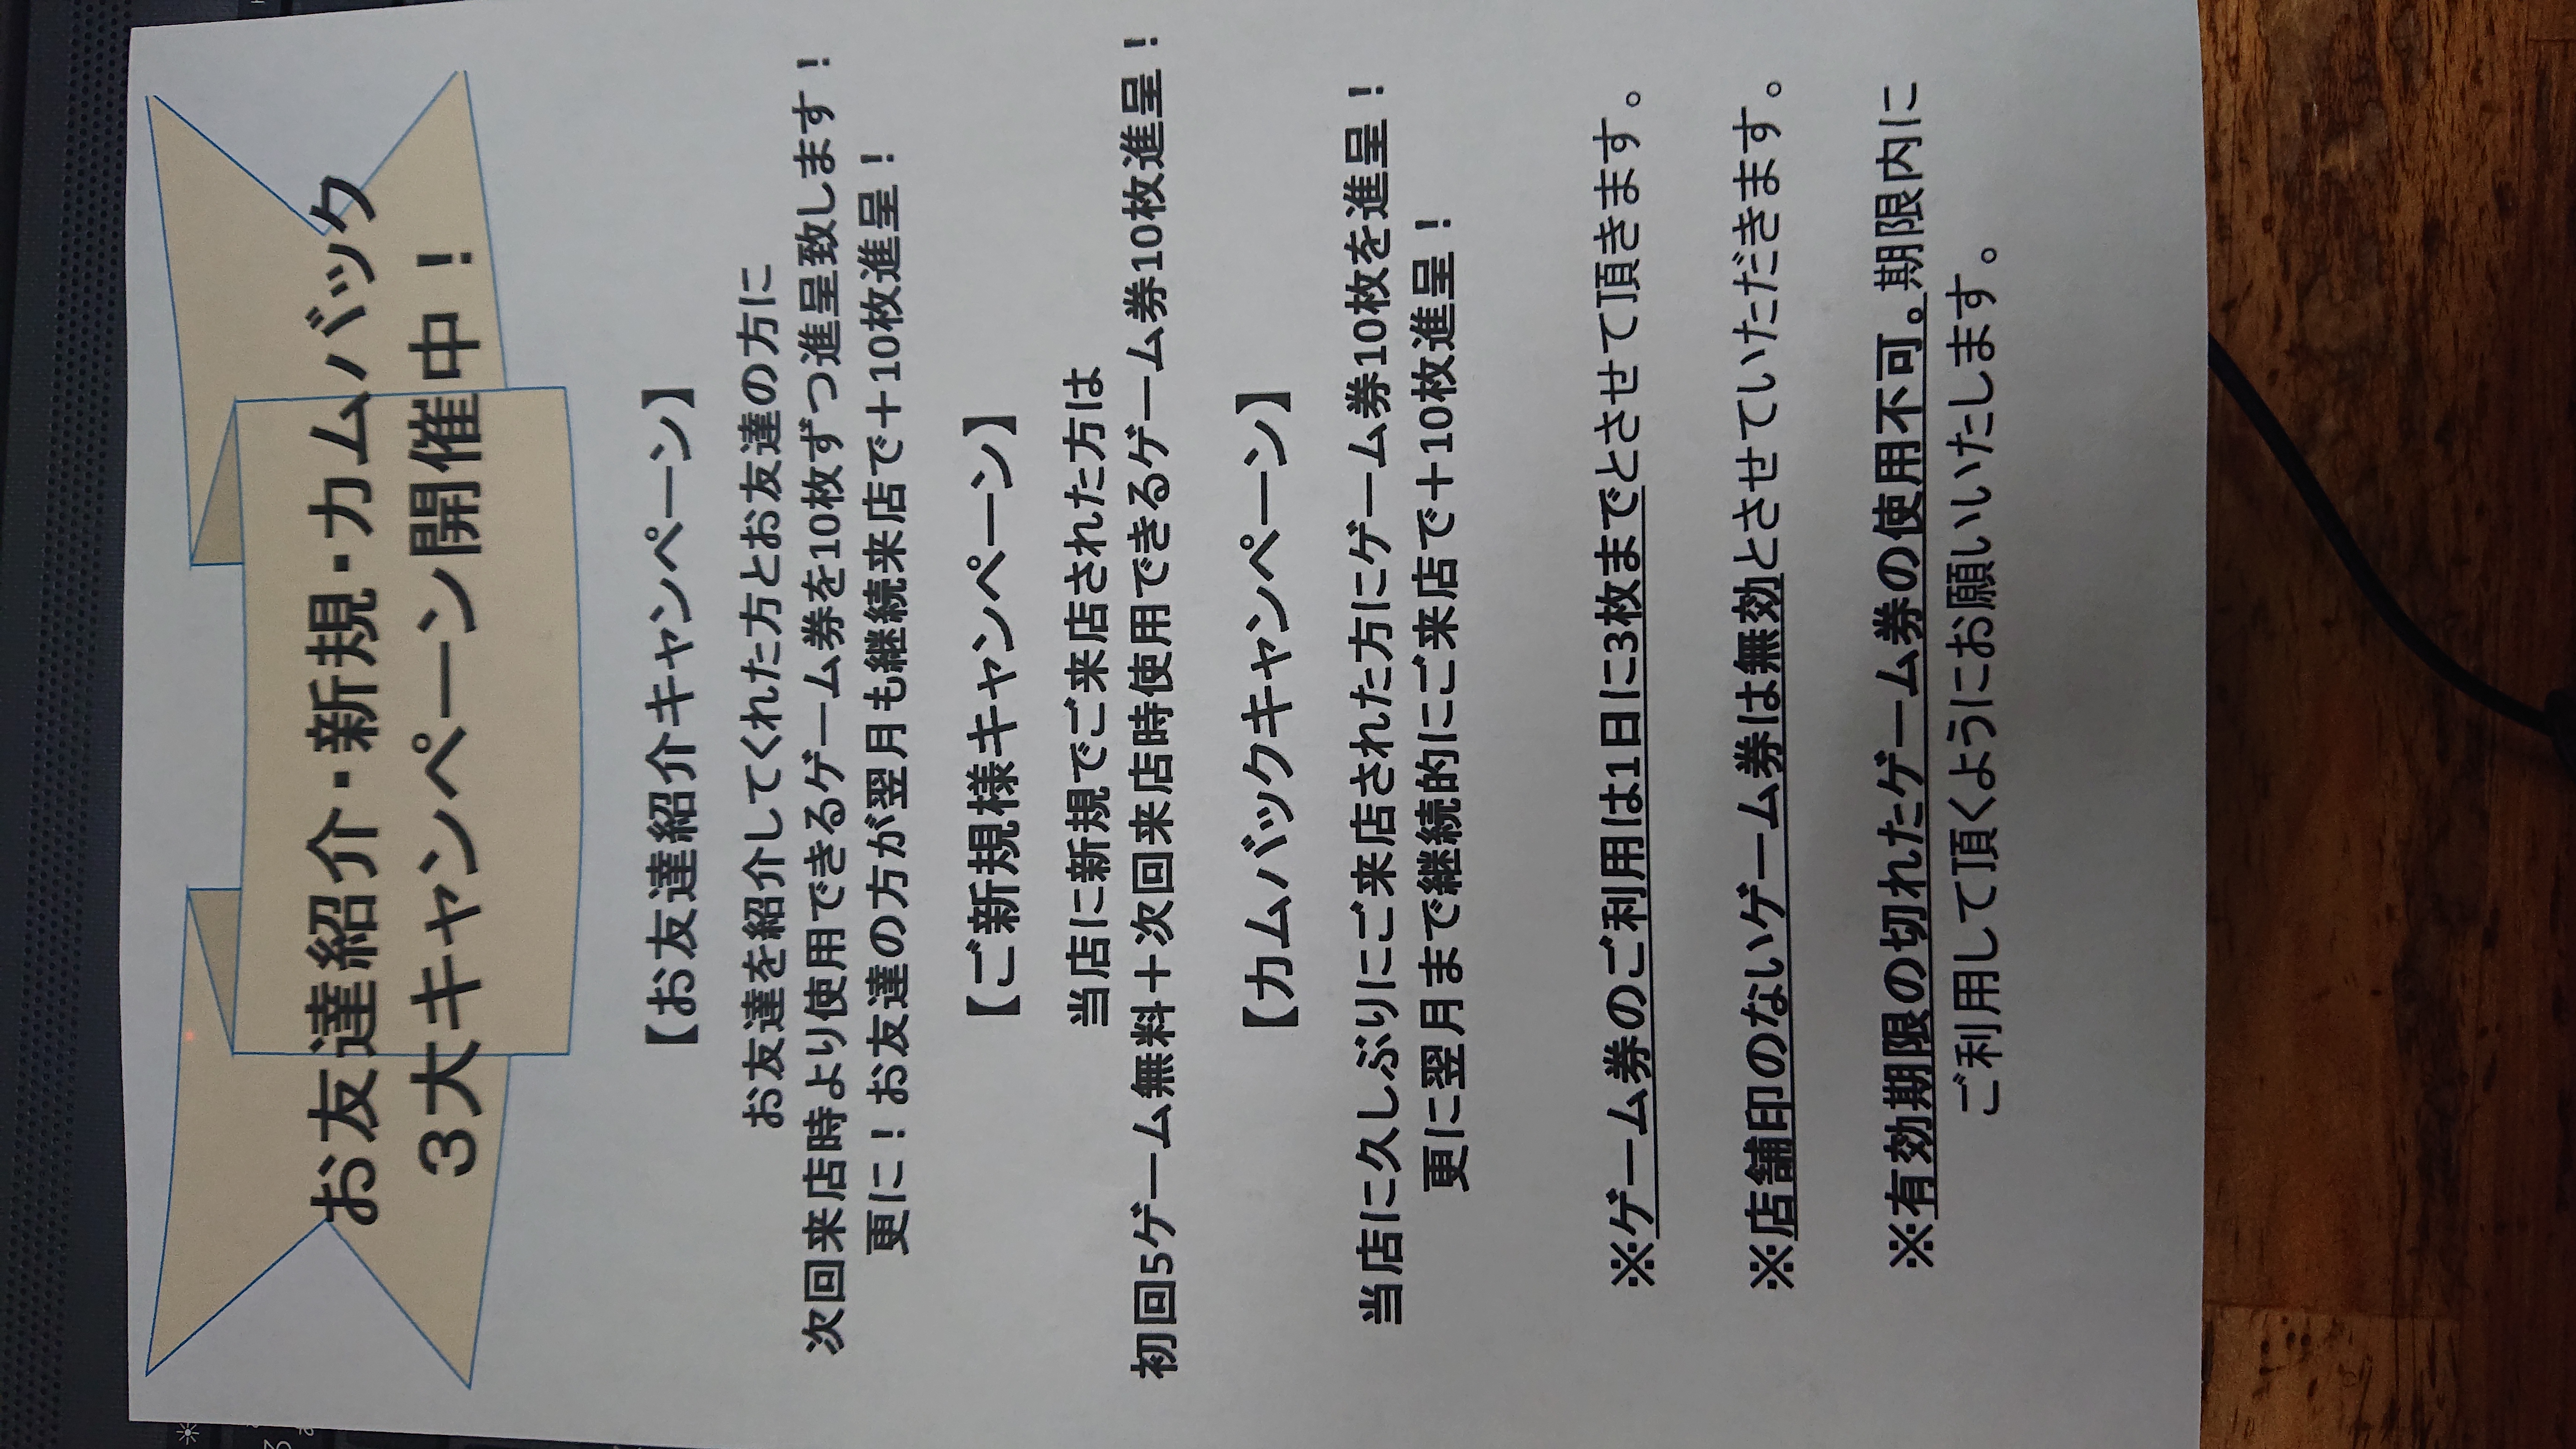 お友達紹介・新規・カムバック
３大キャンペーン開催中！
【お友達紹介キャンペーン】
お友達を紹介してくれた方とお友達の方に
次回来店時より使用できるゲーム券を10枚ずつ進呈致します！
更に！お友達の方が翌月も継続来店で＋10枚進呈！
【ご新規様キャンペーン】
当店に新規でご来店された方は
初回5ゲーム無料＋次回来店時使用できるゲーム券10枚進呈！
【カムバックキャンペーン】
当店に久しぶりにご来店された方にゲーム券10枚を進呈！
更に翌月まで継続的にご来店で＋10枚進呈！
※ゲーム券のご利用は1日に3枚までとさせて頂きます。
※店舗印のないゲーム券は無効とさせていただきます。
※有効期限の切れたゲーム券の使用不可。期限内に
ご利用して頂くようにお願いいたします。